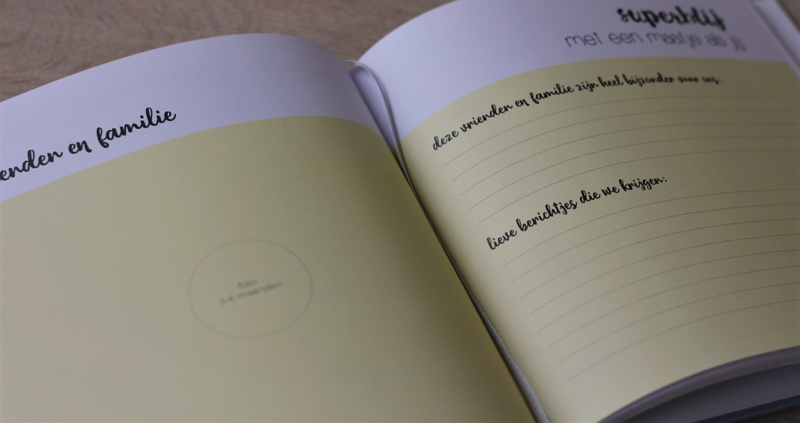 enden en familie
foto
5-6 maanden
superblij
met een maatje als jij
deze vrienden en familie zijn heel bijzonder voor ons:
lieve berichtjes die we krijgen: